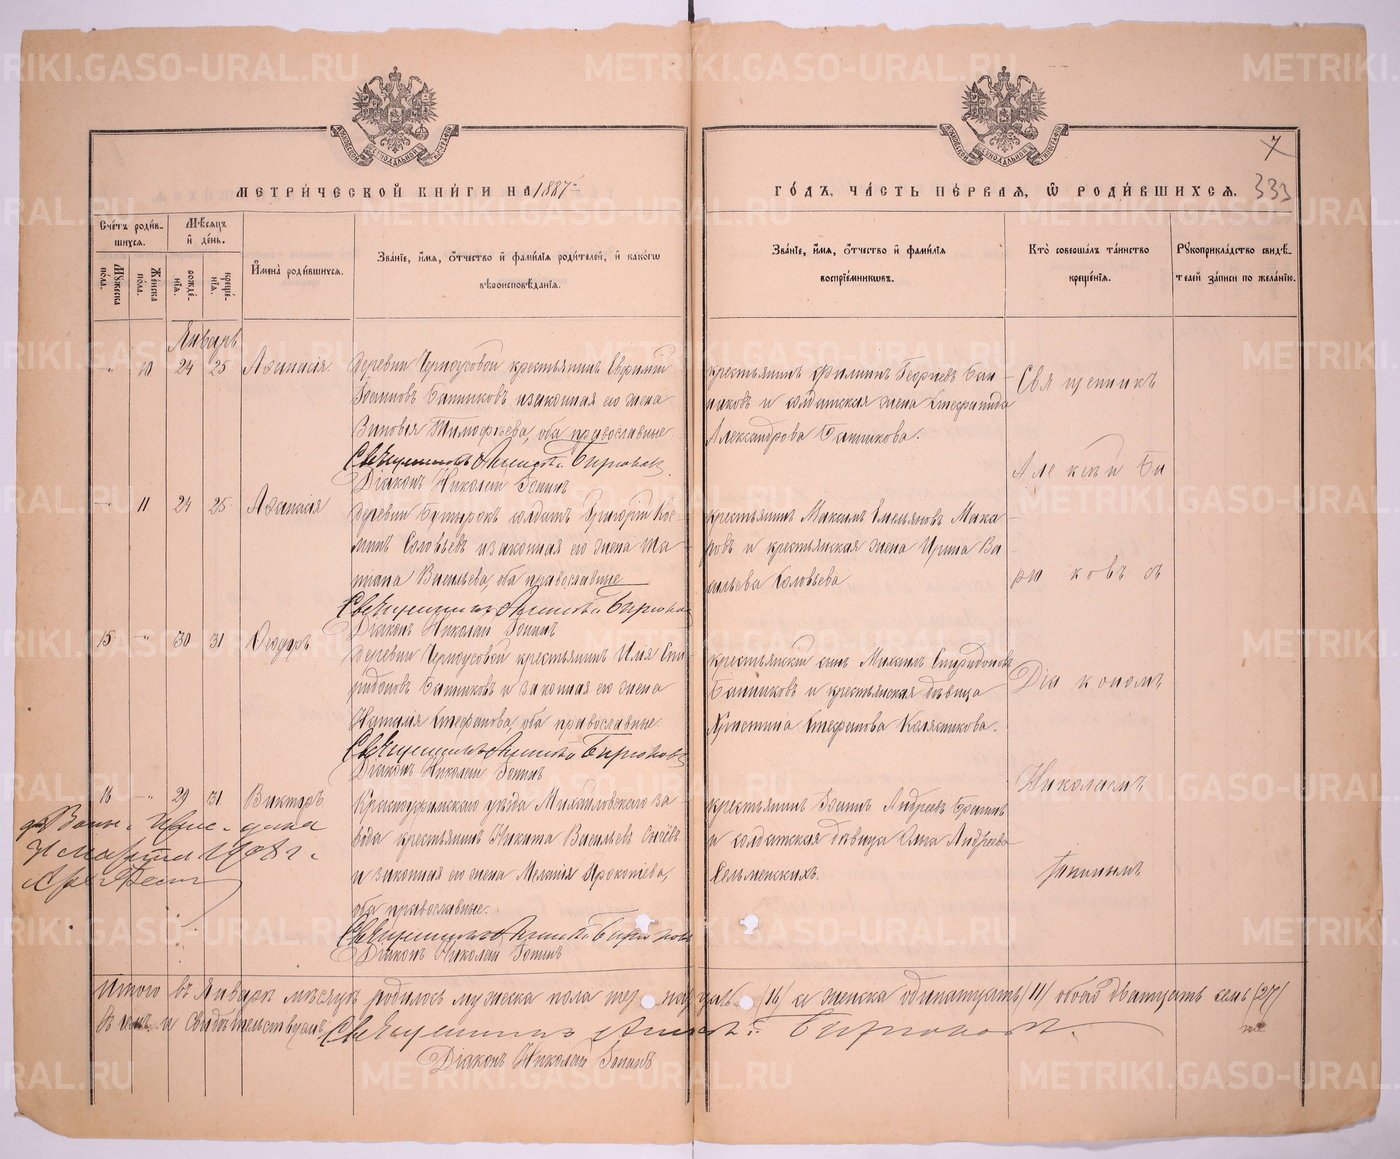 METRIKI.GASO-URAL.RU
7
333
МЕТРИ́ЧЕСКОЙ КНИ́ГИ НА 1887
ГО́ДЪ, ЧА́СТЬ ПЕ́РВАЯ, Ѡ РОДИ́ВШИХСЯ.
Сче́тъ роди́в-
шихся.
Му́жеска по́ла.
Же́нска по́ла.
Мѣ́сяцъ
и҆ де́нь.
рожде́-
нїя.
креще́-
нїя.
И҆мена̀ роди́вшихся.
Зва́нїе, и҆́мя, о҆́тчество и҆ фами́лїя роди́телей, и҆ како́гѡ
вѣроисповѣ́данїя.
Зва́нїе, и҆́мя, о҆́тчество и҆ фами́лїя
воспрїе́мниковъ.
Кто̀ соверша́лъ та́инство
креще́нїя.
Рꙋкоприкла́дство свидѣ́-
телей за́писи по жела́нїю.
Январь
10 24 25 Аѳанасія
Деревни Черноусовой крестьянинъ Евфимій
Банниковъ и законная его жена
Зиновія Тимофѣева, оба православные
Священникъ Алексѣй Бирюковъ
Діаконъ Николай
крестьянинъ Филиппъ Георгіевъ Бан-
никовъ и солдатская жена Стефанида
Александрова Банникова.
11 24 25
Деревни Бутырокъ солдатъ Григорій Кос-
минъ Соловьевъ и законная его жена Та-
тіана Васильева, оба православные
Священникъ Алексѣй Бирюковъ
Діаконъ Николай
крестьянинъ Максимъ Емельяновъ Мака-
ровъ и крестьянская жена Ирина Ва-
сильева Соловьева.
15 30 31 Ѳеодоръ
Деревни Черноусовой крестьянинъ Илія Спи-
ридоновъ Банниковъ и законная его жена
Наталія Стефанова, оба православные
Священникъ Алексѣй Бирюковъ
Діаконъ Николай
крестьянскій сынъ Михаилъ Спиридоновъ
Банниковъ и крестьянская дѣвица
Христина Стефанова Колясникова.
16 29 31 Викторъ
Красноуфимскаго уѣзда Михайловскаго за-
вода крестьянинъ Никита Васильевъ
и законная его жена Прокопіева,
оба православные.
Священникъ Алексѣй Бирюковъ
Діаконъ Николай
крестьянинъ Андреевъ
и солдатская дѣвица Анна Андреева
Священникъ
Алексѣй Би
рюковъ съ
Діакономъ
Николаемъ
1908 г.
Итого въ Январѣ мѣсяцѣ родилось мужеска пола /16/ а женска одинатцать /11/ обоего дватцать семь /27/
Священникъ Алексѣй Бирюковъ.
Діаконъ Николай